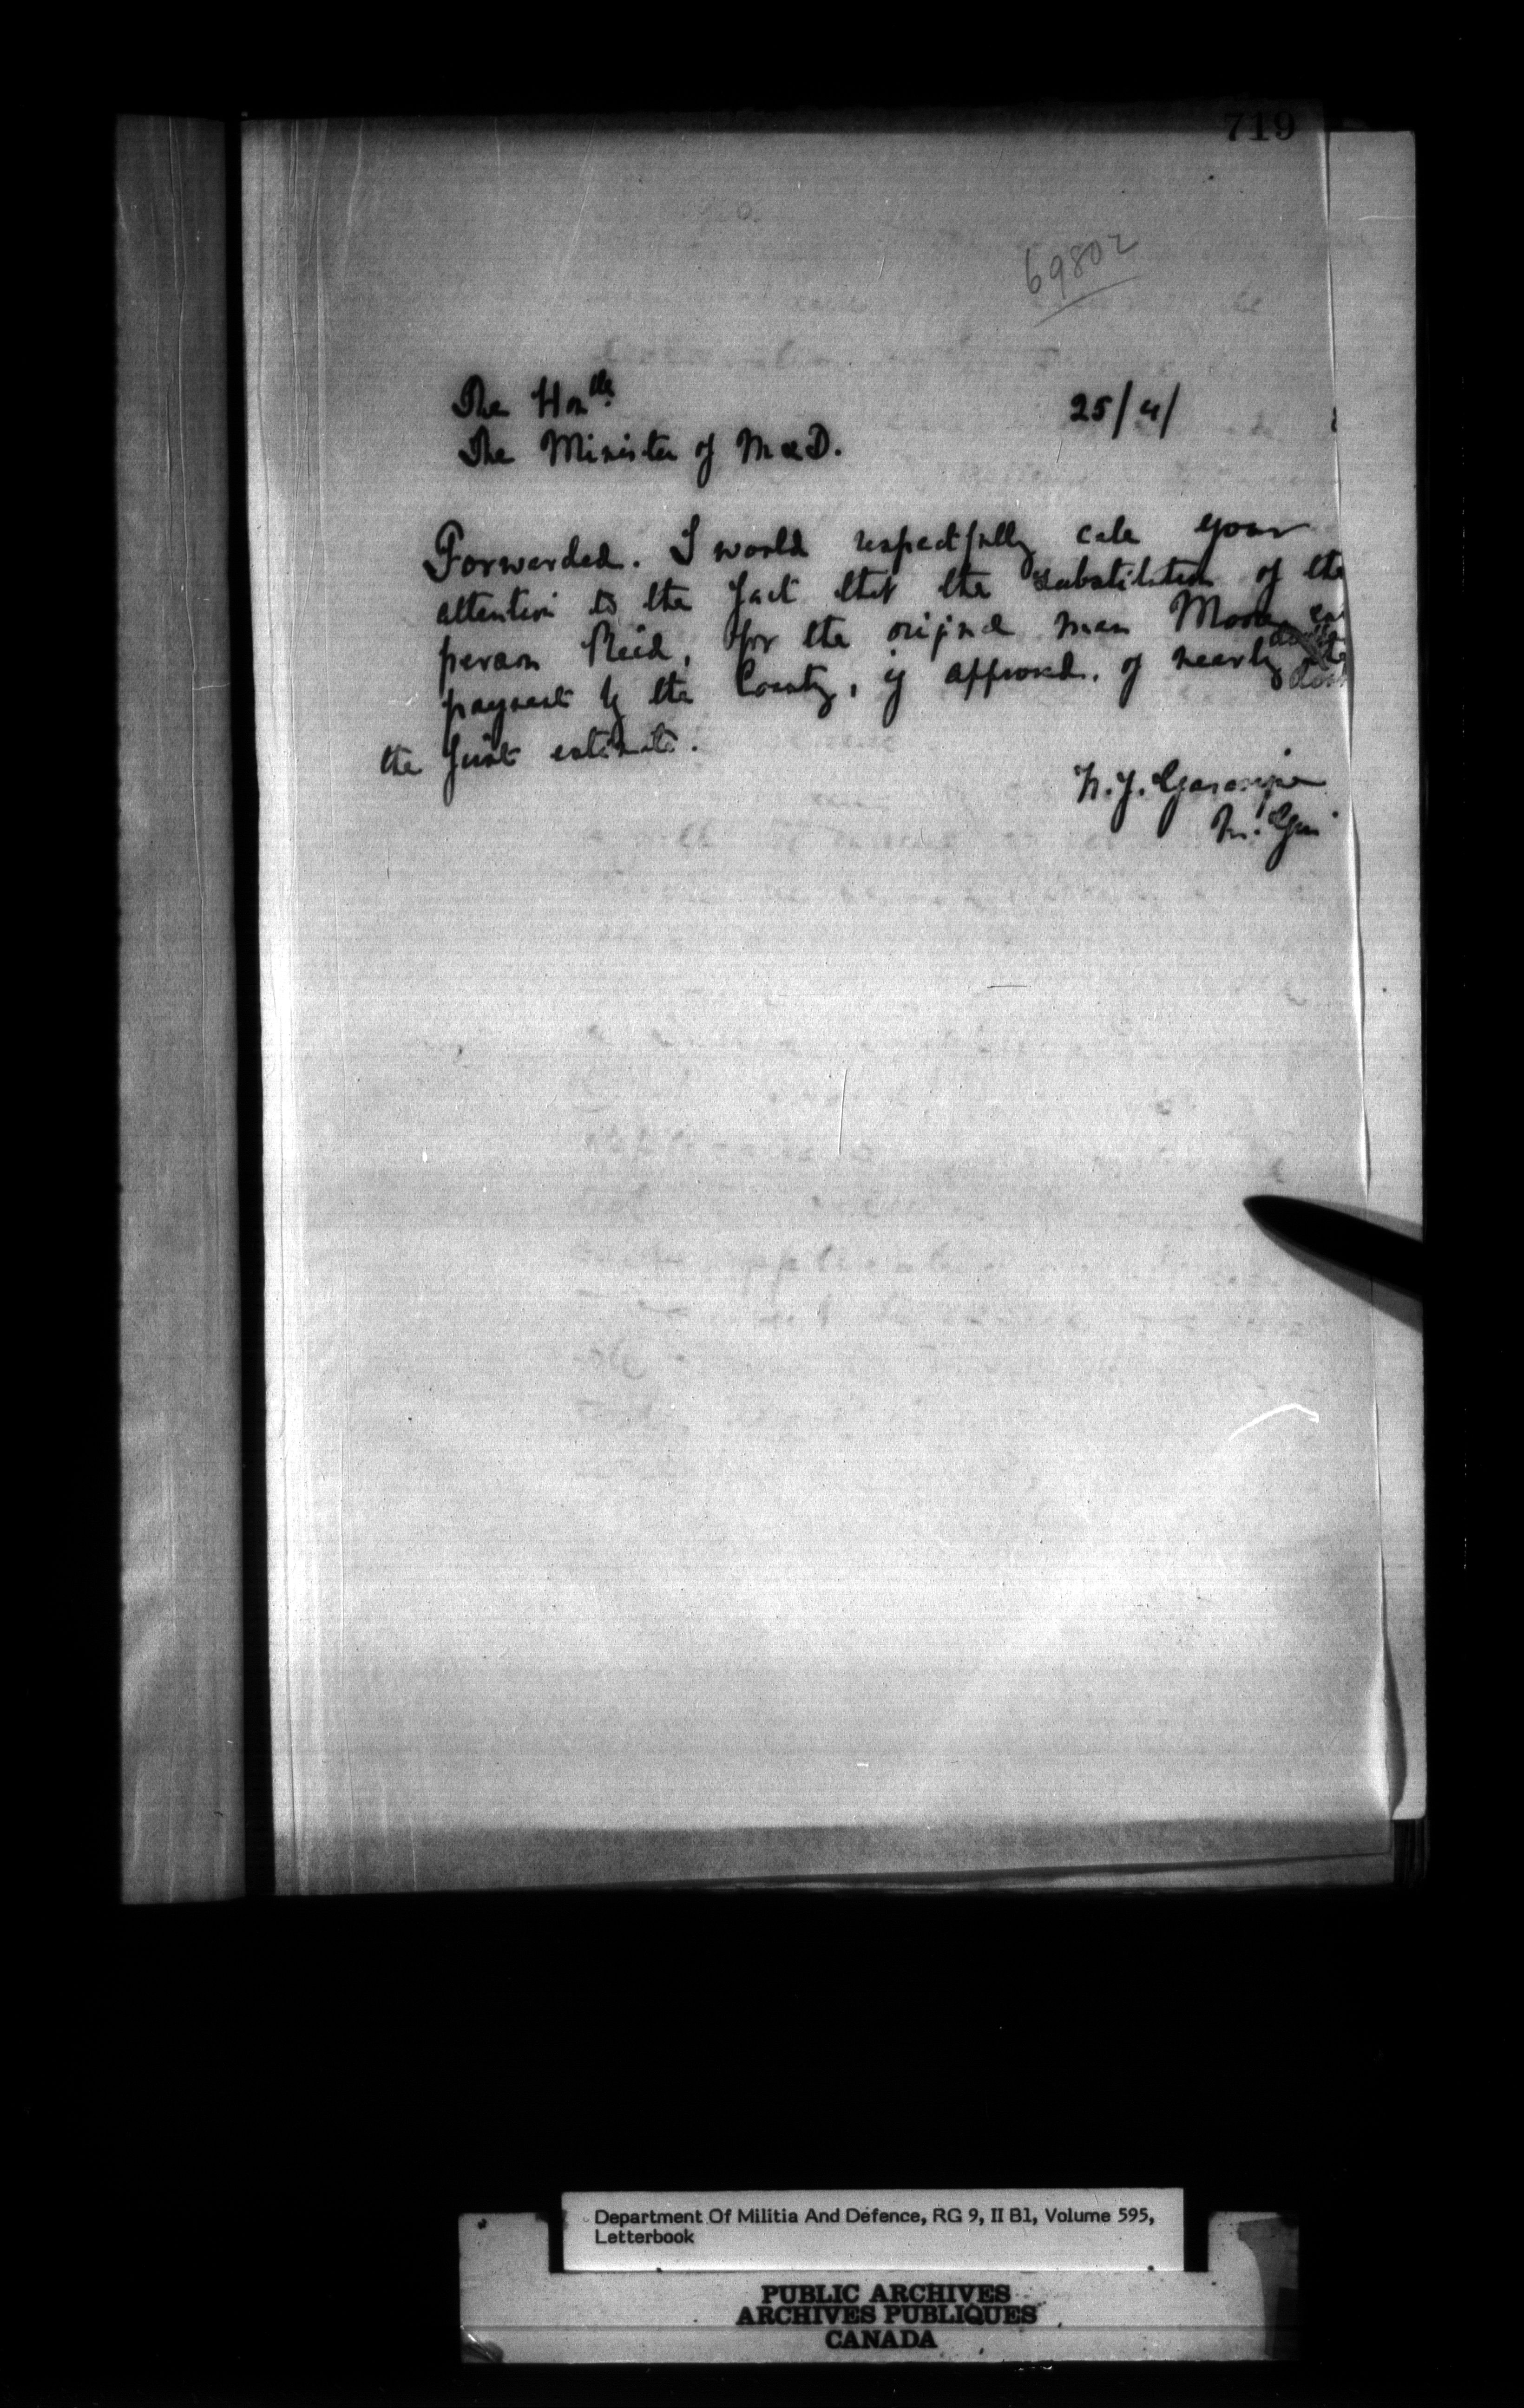 719
69802
The Honble
25/4/
The Minister of M & D.
Forwarded. I would respectfully call your
attention to the fact that the substitution of the
person Reid, for the original man Moore
payment by the County, if approved, of nearly
the first estimate.
M. Gen
Department Of Militia And Defence, RG 9, II B1, Volume 595,
Letterbook
PUBLIC ARCHIVES
ARCHIVES PUBLIQUES
CANADA